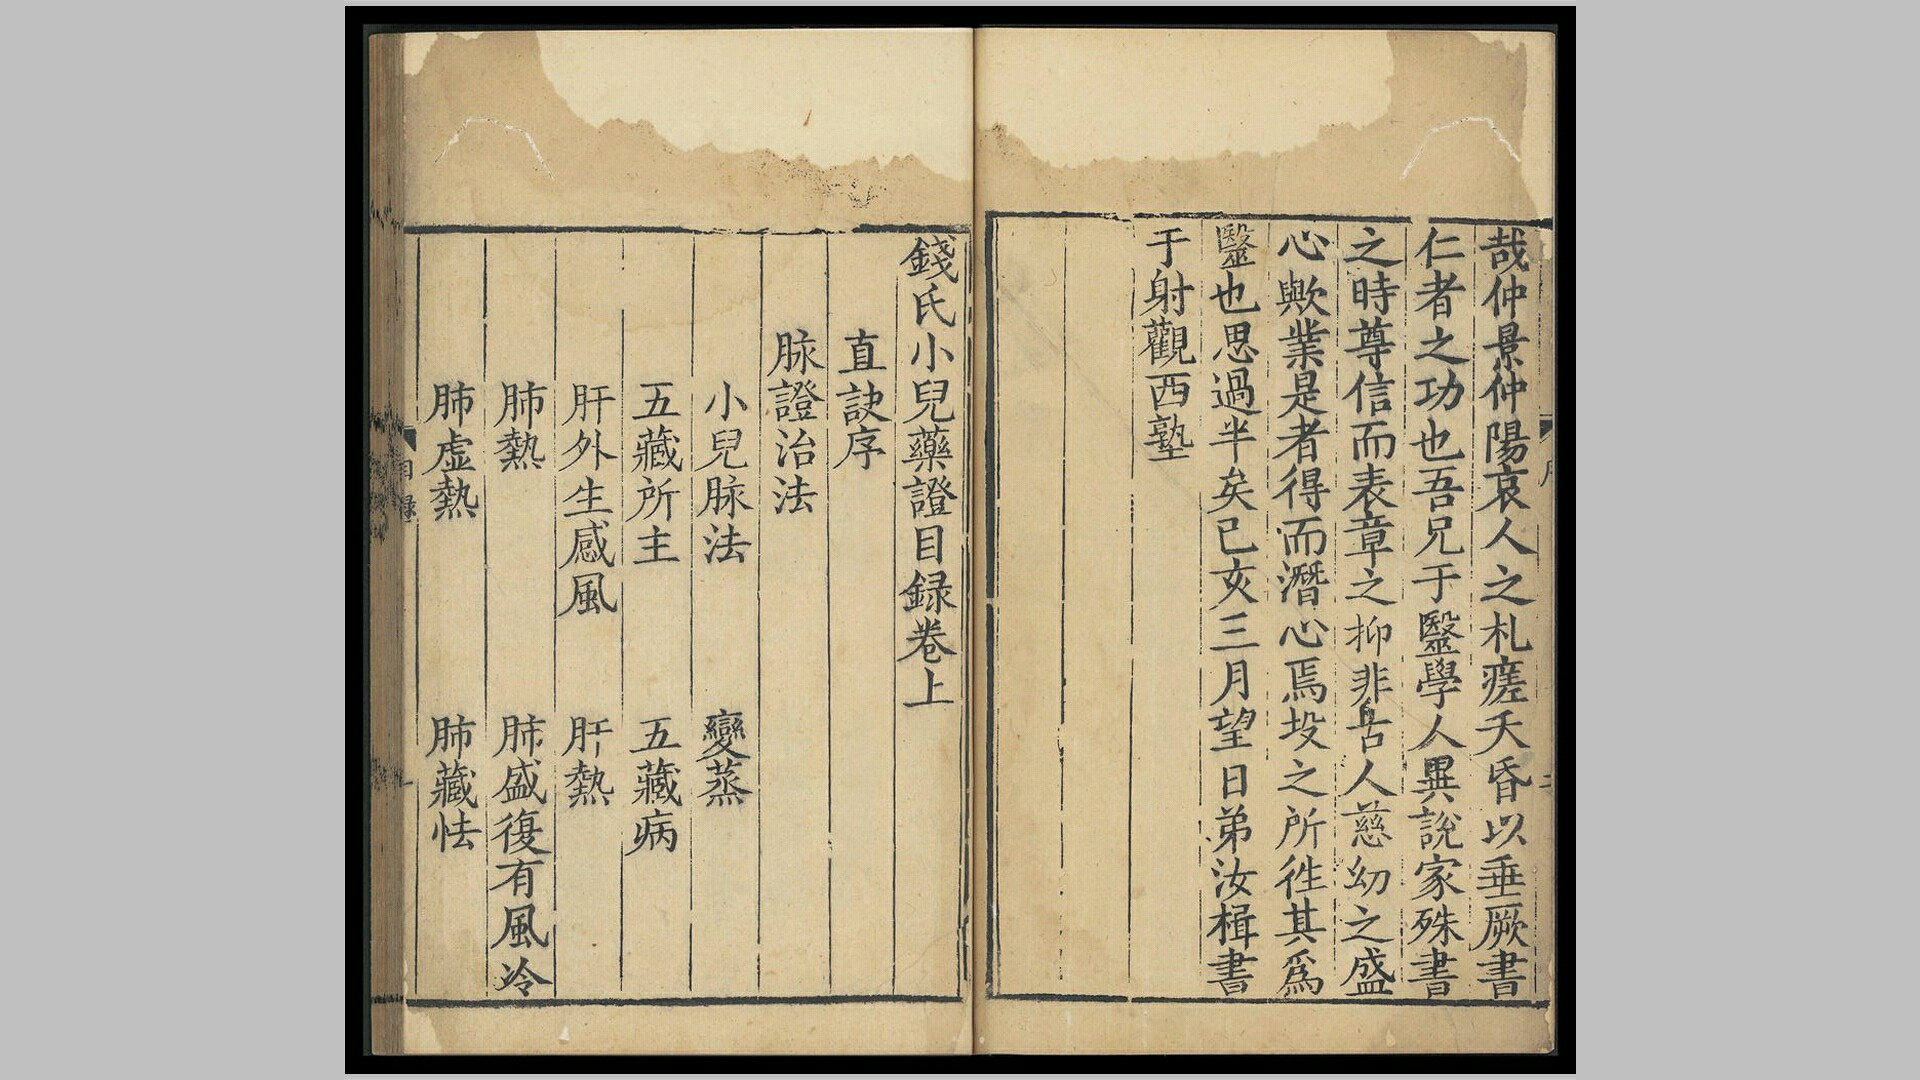 哉仲景仲陽哀人之札瘥夭昏以垂厥書
仁者之功也吾兄于毉學人異說家殊書
之時尊信而表章之抑非古人慈幼之盛
心歟業是者得而潛心焉投之所徃其爲
毉也思過半矣已亥三月望日弟汝楫書
于射觀西塾
錢氏小兒藥證目録卷上
直訣序
脉證治法
小兒脉法 變蒸
五藏所主 五藏病
肝外生感風 肝熱
肺熱 肺盛復有風冷
肺虚熱 肺藏怯
目録